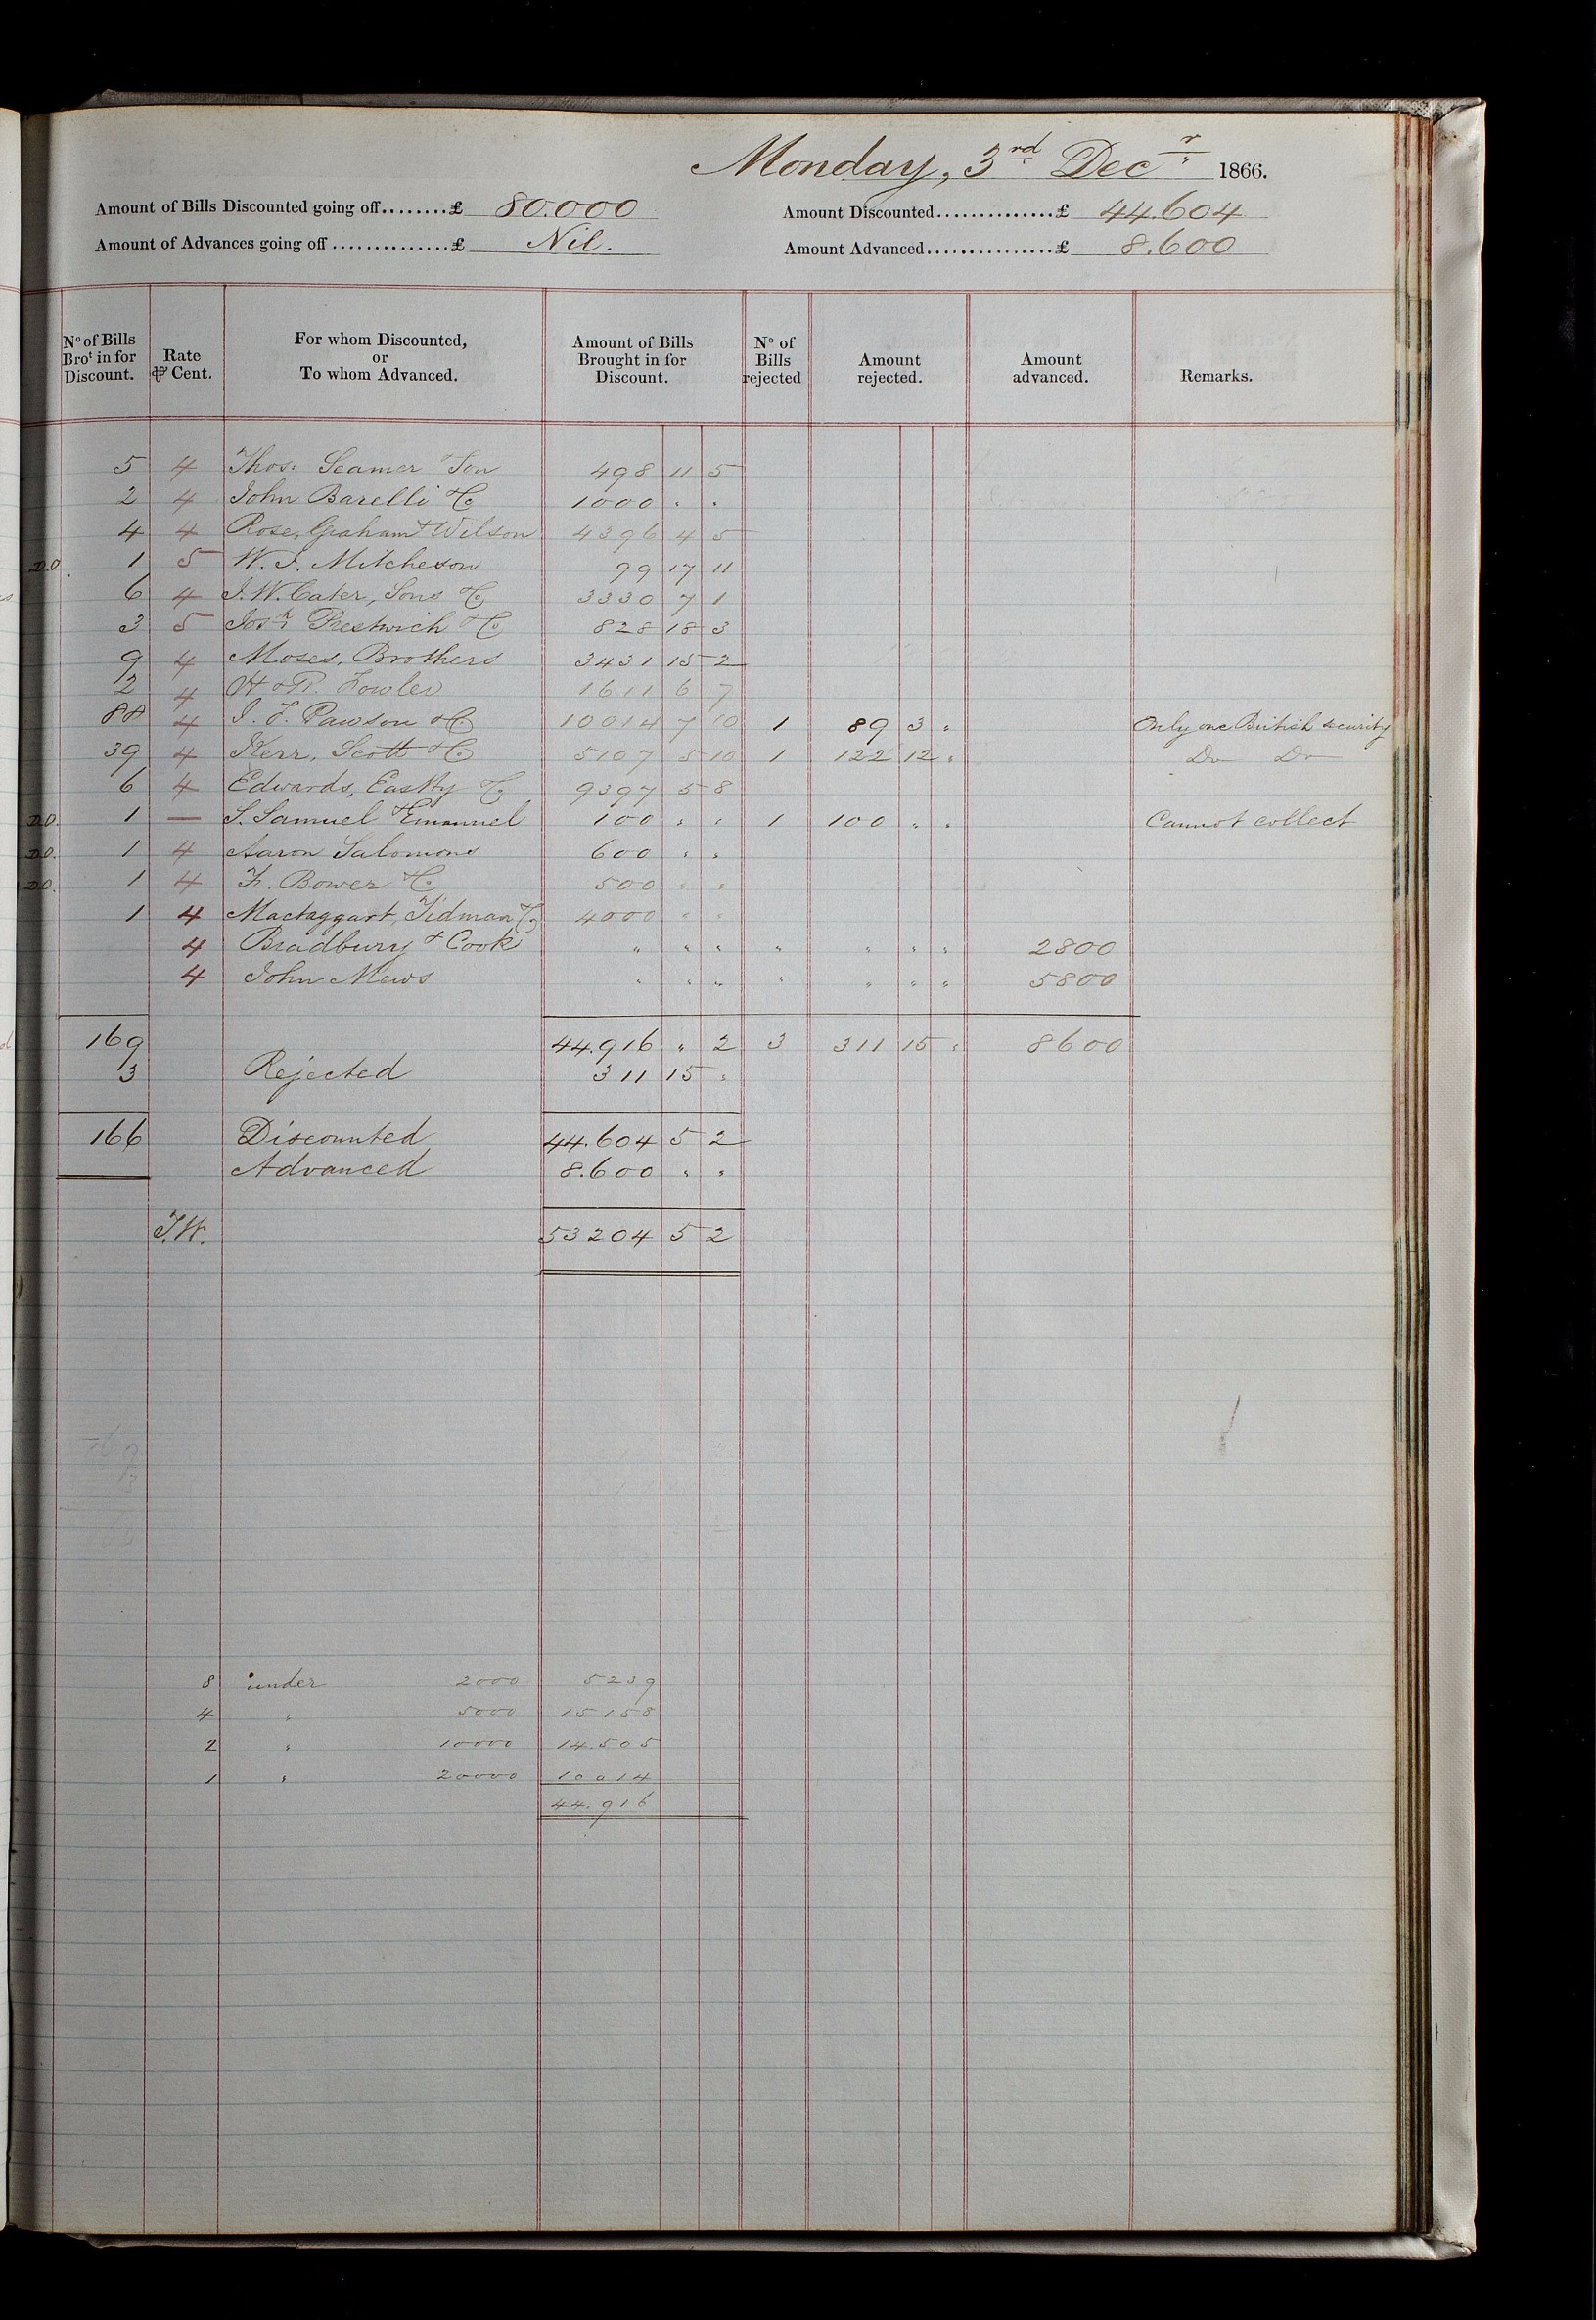 Monday, 3rd Decr 1866.
Amount of Bills Discounted going off........£ 80.000 Amount Discounted..............£ 44.604
Amount of Advances going off ..............£ Nil. Amount Advanced...............£ 8.600
No of Bills Brot in for Discount. Rate ⅌ Cent. For whom Discounted, or To whom Advanced. Amount of Bills Brought in for Discount. No of Bills rejected Amount rejected. Amount advanced. Remarks.
5 4 Thos. Seamer & Son 498 11 5
2 4 John Barelli & Co 1000 " "
4 4 Rose, Graham & Wilson 4396 4 5
D.O. 1 5 W. J. Mitcheson 99 17 11
6 4 J. W. Cater, Sons & Co 3330 7 1
3 5 Josh Prestwich & Co 828 18 3
9 4 Moses, Brothers 3431 15 2
2 4 H & R. Fowler 1611 6 7
88 4 J. F. Pawson & Co 10014 7 10 1 89 3 " Only one British security
39 4 Kerr, Scott & Co 5107 5 10 1 122 12 " Do Do
6 4 Edwards, Eastty & Co 9397 5 8
D.O. 1 — S. Samuel & Emanuel 100 " " 1 100 " " Cannot collect
D.O. 1 4 Aaron Salomons 600 " "
D.O. 1 4 F. Bower & Co 500 " "
1 4 Mactaggart, Tidman & Co 4000 " "
4 Bradbury & Cook " " " " " " " 2800
4 John Mews " " " " " " " 5800
169 44.916 " 2 3 311 15 " 8600
3 Rejected 311 15 "
166 Discounted 44.604 5 2
Advanced 8.600 " "
T.W. 53204 5 2
8 under 2000 5239
4 " 5000 15158
2 " 10000 14.505
1 " 20000 10014
44.916